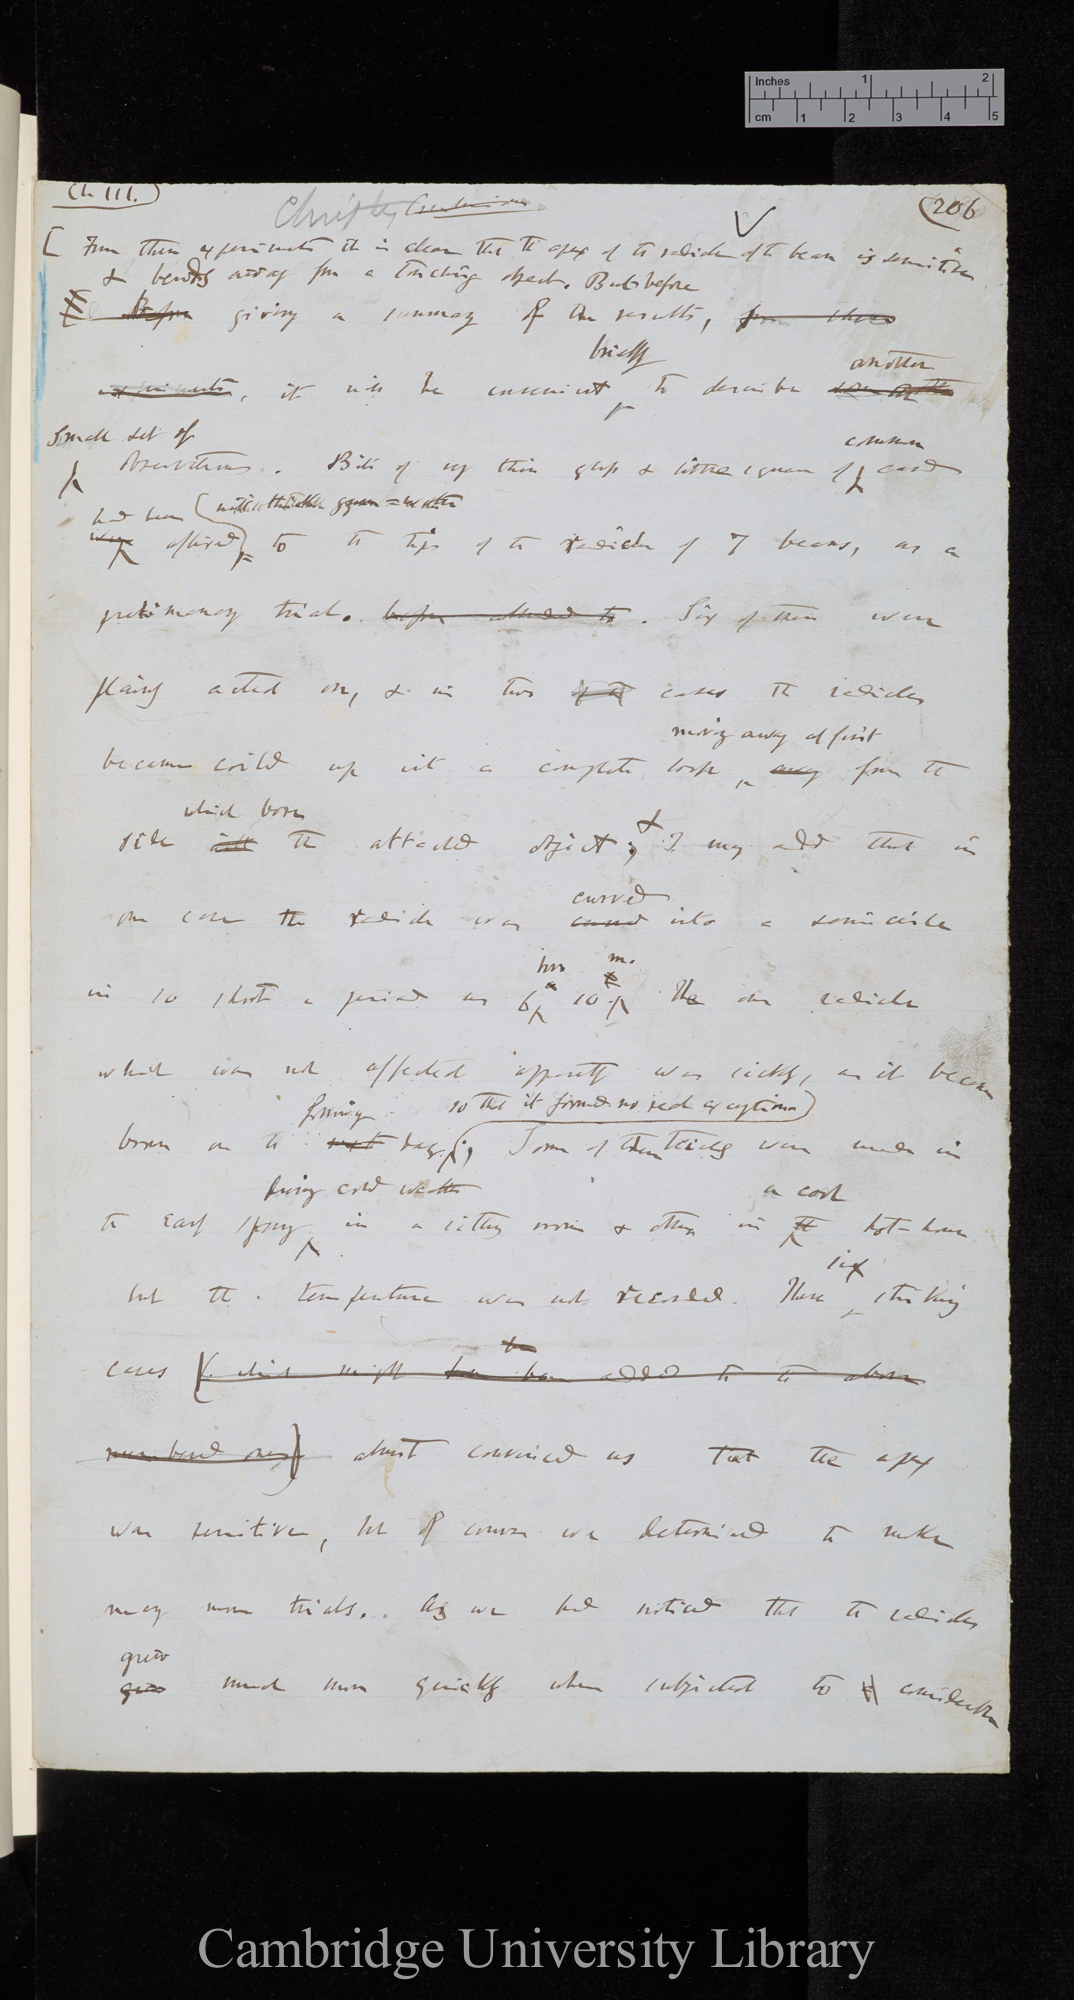 Inches 1 2
cm 1 2 3 4 5
Ch. III.
206
[ From these experiments it is clear that the apex of the radicle of the bean is sensitive
& bends away from a touching object. But before
Before giving a summary of the results, from these
experiments, it will be convenient briefly to describe another
small set of
observations. Bits of very thin glass & little squares of common card
had been (with thick gum-water
were affixed) to the tips of the radicles of 7 beans, as a
preliminary trial. before alluded to. Six of these were
plainly acted on, & in two of the cases the radicles
moving away at first
became coiled up into a complete loop, away from the
which bore
side with the attached object; & I may add that in
curved
one case the radicle was curved into a semicircle
hrs m.
in so short a period as 6 10. The one radicle
which was not affected apparently was sickly, as it became
so that it formed no real exception)
brown on the following day; Some of these trials were made in
during cold weather a cool
the early spring in a sitting room & others in the hot-house
six
but the temperature was not recorded. These striking
be
cases (which might have been added to the above
numbered ones) almost convinced us that the apex
was sensitive, but of course we determined to make
many more trials. As we had noticed that the radicles
grew
grew much more quickly when subjected to considerable
Cambridge University Library